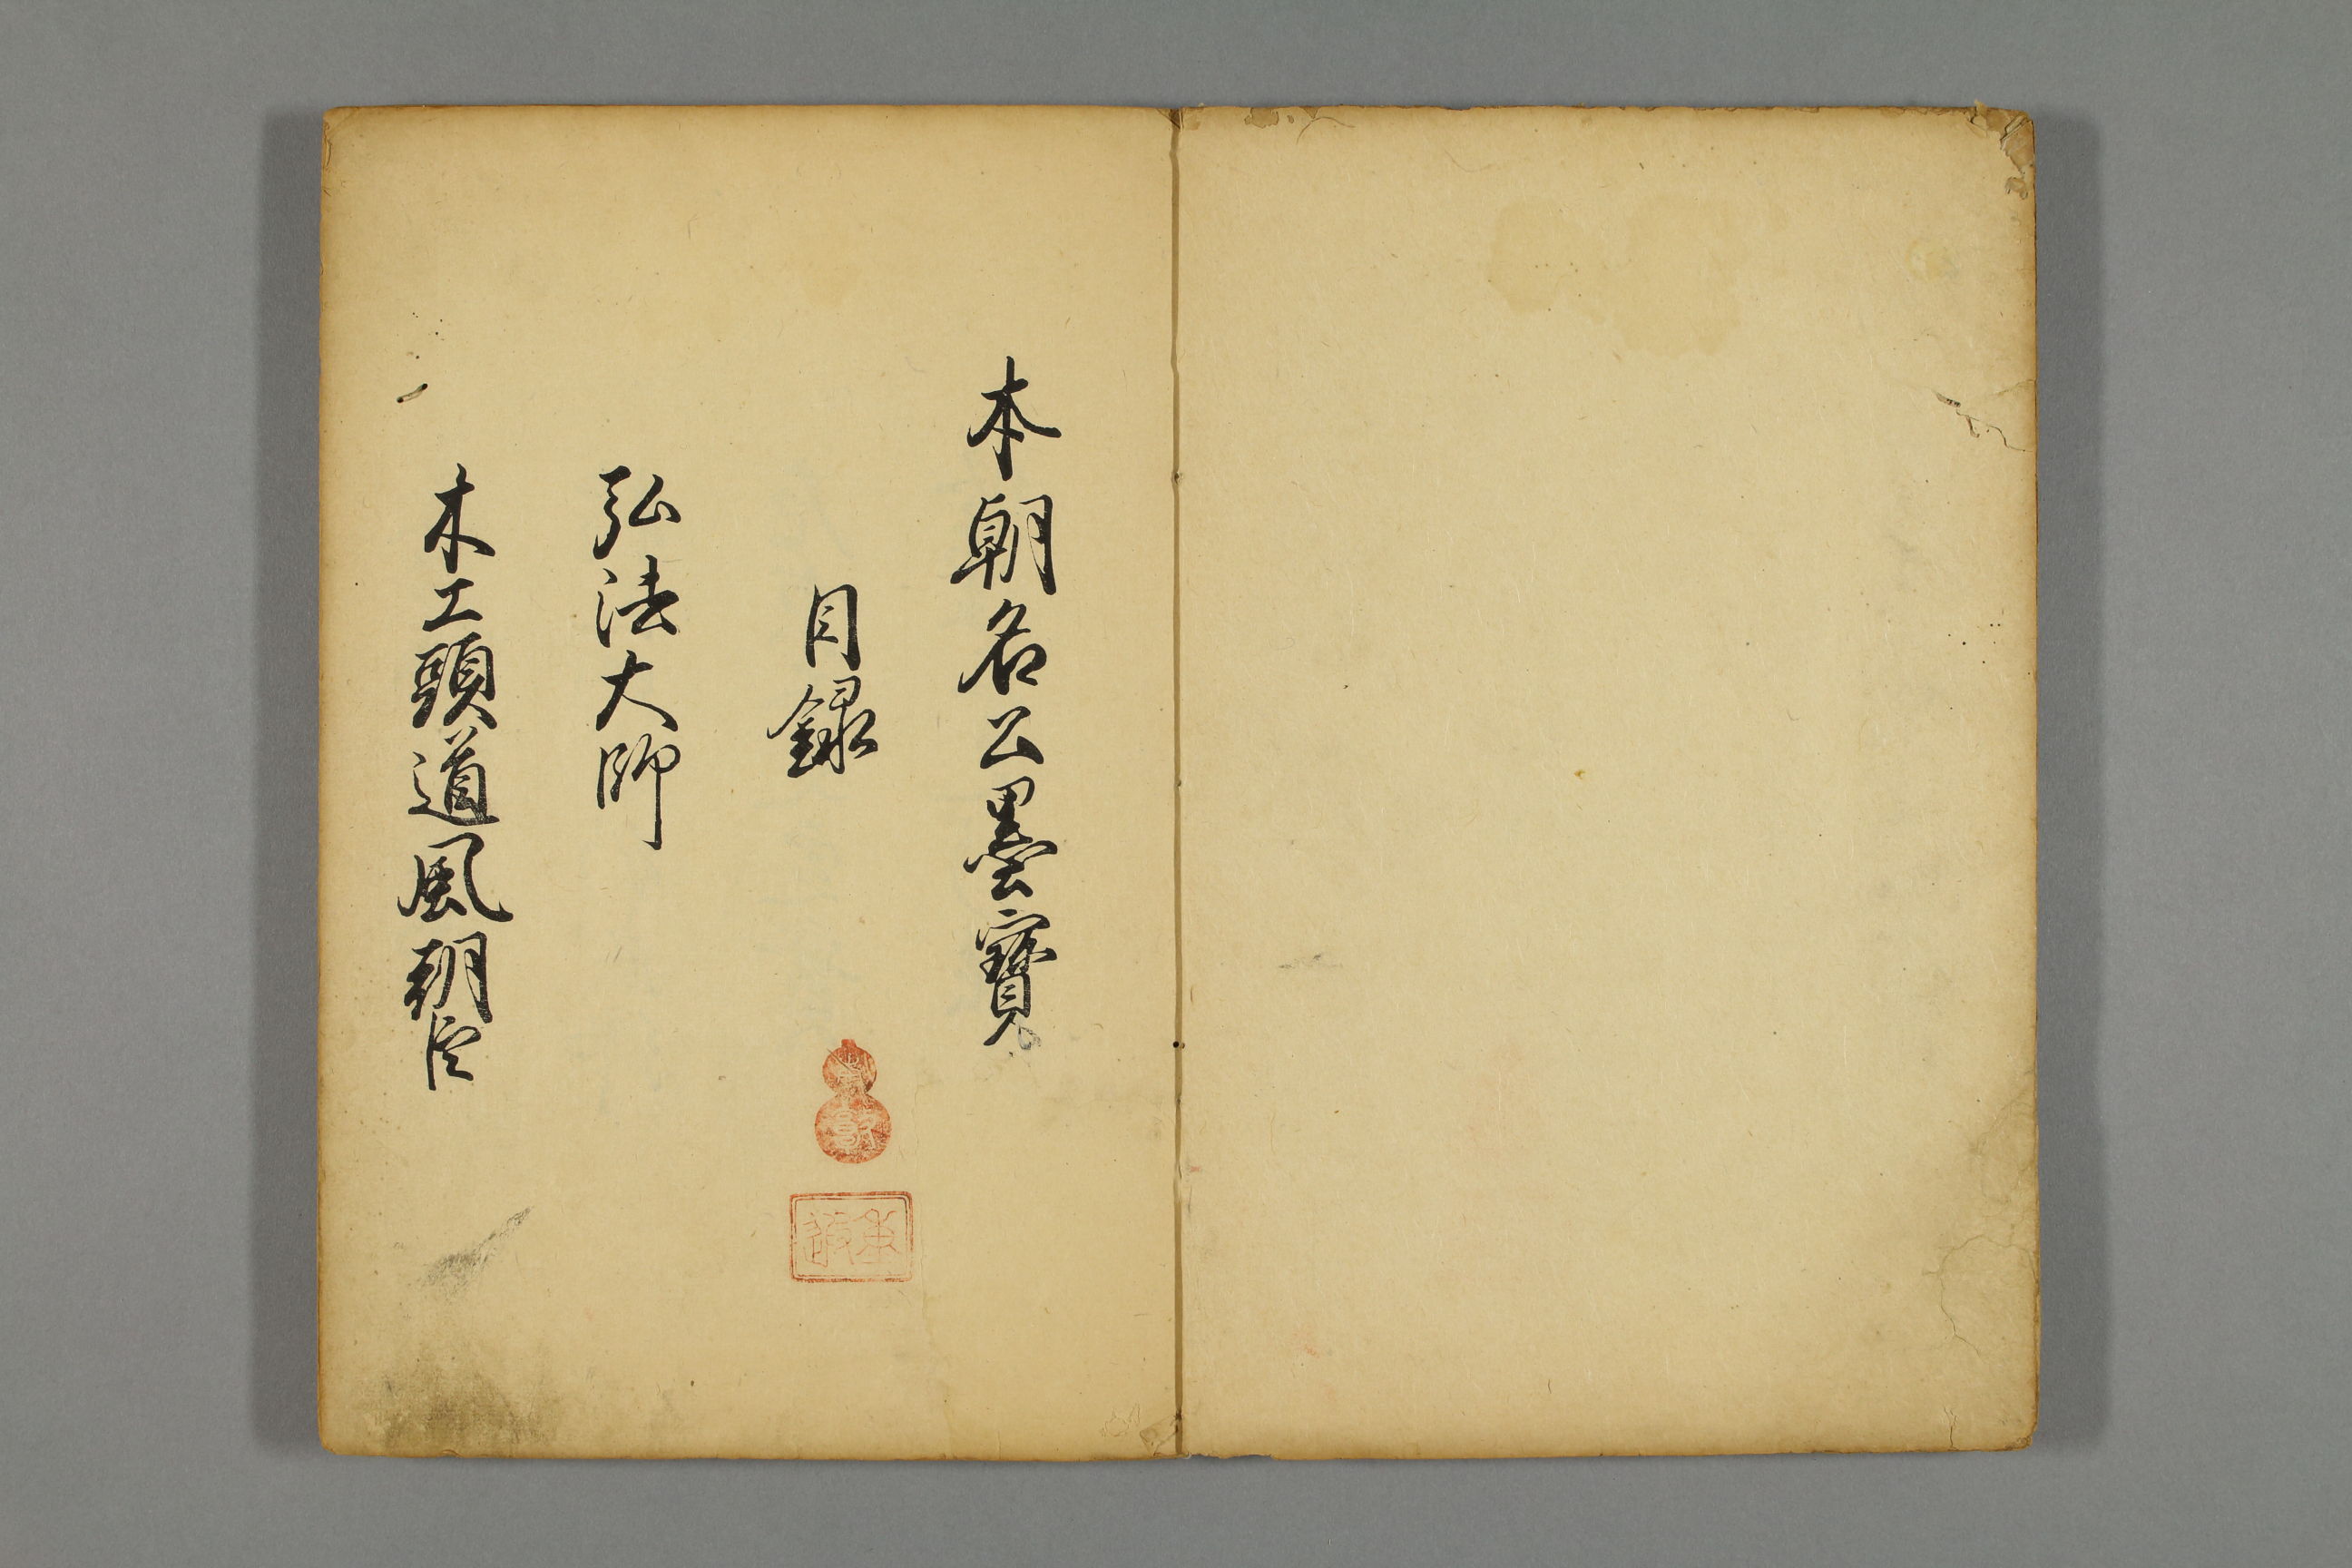 本朝名公墨寶
目録
弘法大師
木工頭道風朝臣